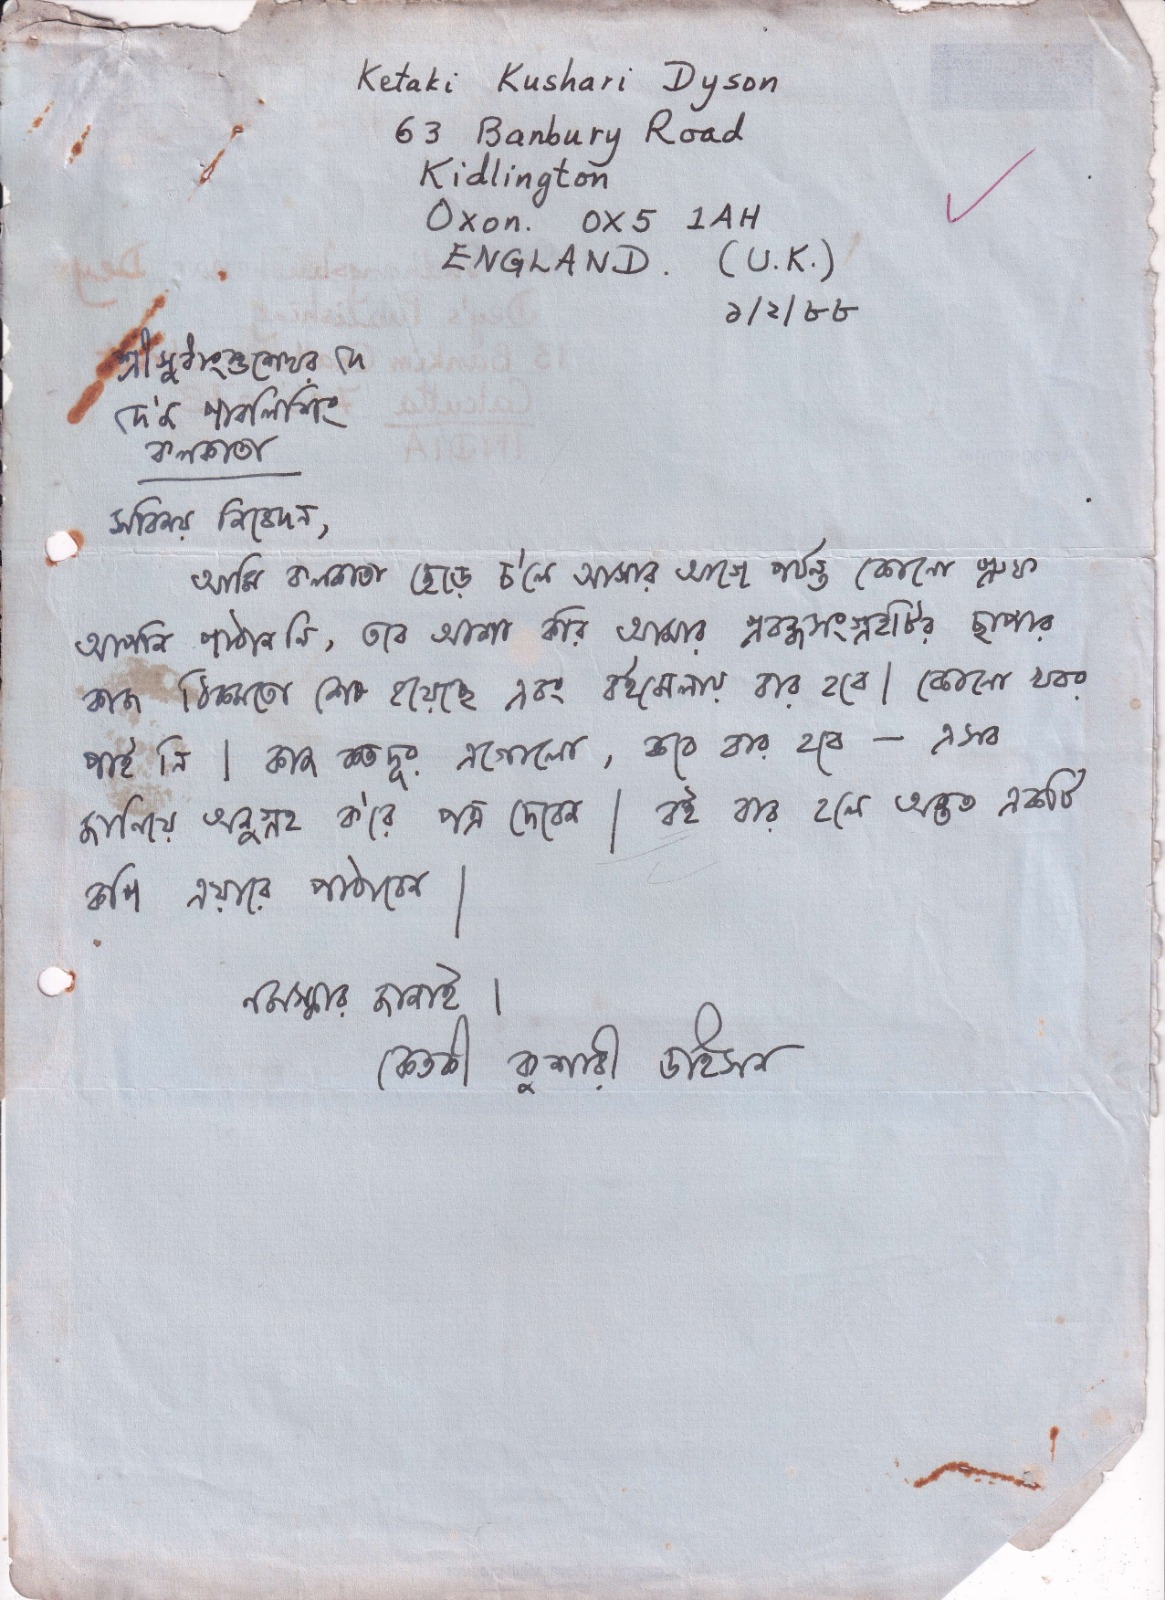 Ketaki Kushari Dyson
63 Banbury Road
Kidlington
Oxon. OX5 1AH
ENGLAND. (U.K.)
১/২/৮৮
শ্রীসুধাংশুশেখর দে
দে'জ পাবলিশিং
কলকাতা
সবিনয় নিবেদন,
আমি কলকাতা ছেড়ে চ'লে আসার আগে পর্যন্ত কোনো প্রুফ
আপনি পাঠান নি, তবে আশা করি আমার প্রবন্ধসংগ্রহটির ছাপার
কাজ ঠিকমতো শেষ হয়েছে এবং বইমেলায় বার হবে। কোনো খবর
পাই নি। কাজ কতদূর এগোলো, কবে বার হবে — এসব
জানিয়ে অনুগ্রহ ক'রে পত্র দেবেন। বই বার হলে অন্তত একটি
কপি এয়ারে পাঠাবেন।
নমস্কার জানাই।
কেতকী কুশারী ডাইসন